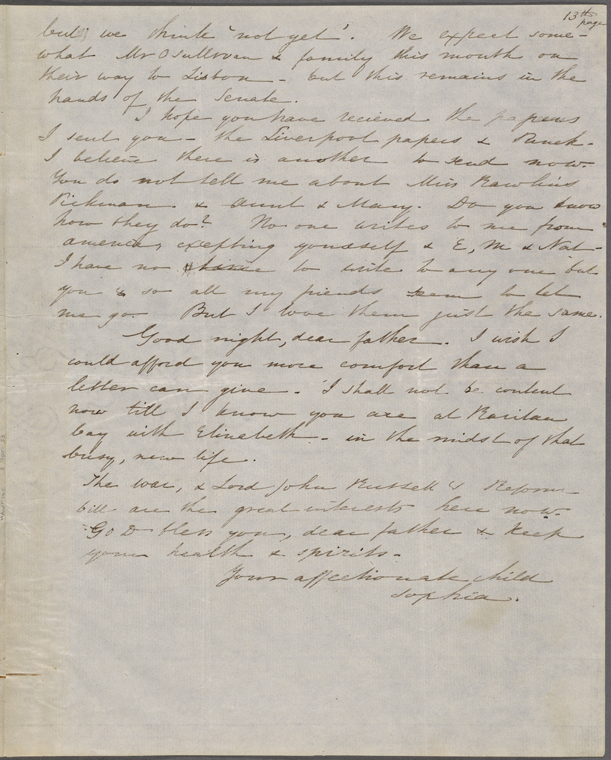 13th page
but, we think 'not yet'. We expect some-
what Mr O'Sullivan & family this month on
their way to Lisbon – but this remains in the
hands of the Senate.
I hope you have recieved the papers
I sent you – the Liverpool papers & Punch –
I believe there is another to send now.
You do not tell me about Miss Rawlins
Pickman & Aunt & Mary. Do you know
how they do? No one writes to me from
america, excepting yourself & E, M & Nat –
I have no time to write to any one but
you & so all my friends seem to let
me go. But I love them just the same.
Good night, dear father. I wish I
could afford you more comfort than a
letter can give – I shall not be content
now till I know you are at Raritan
Bay with Elizabeth – in the midst of that
busy, new life.
The war, & Lord John Russell's Reform
bill are the great interests here now.
GOD bless you, dear father & keep
your health & spirits –
Your affectionate child
Sophia.